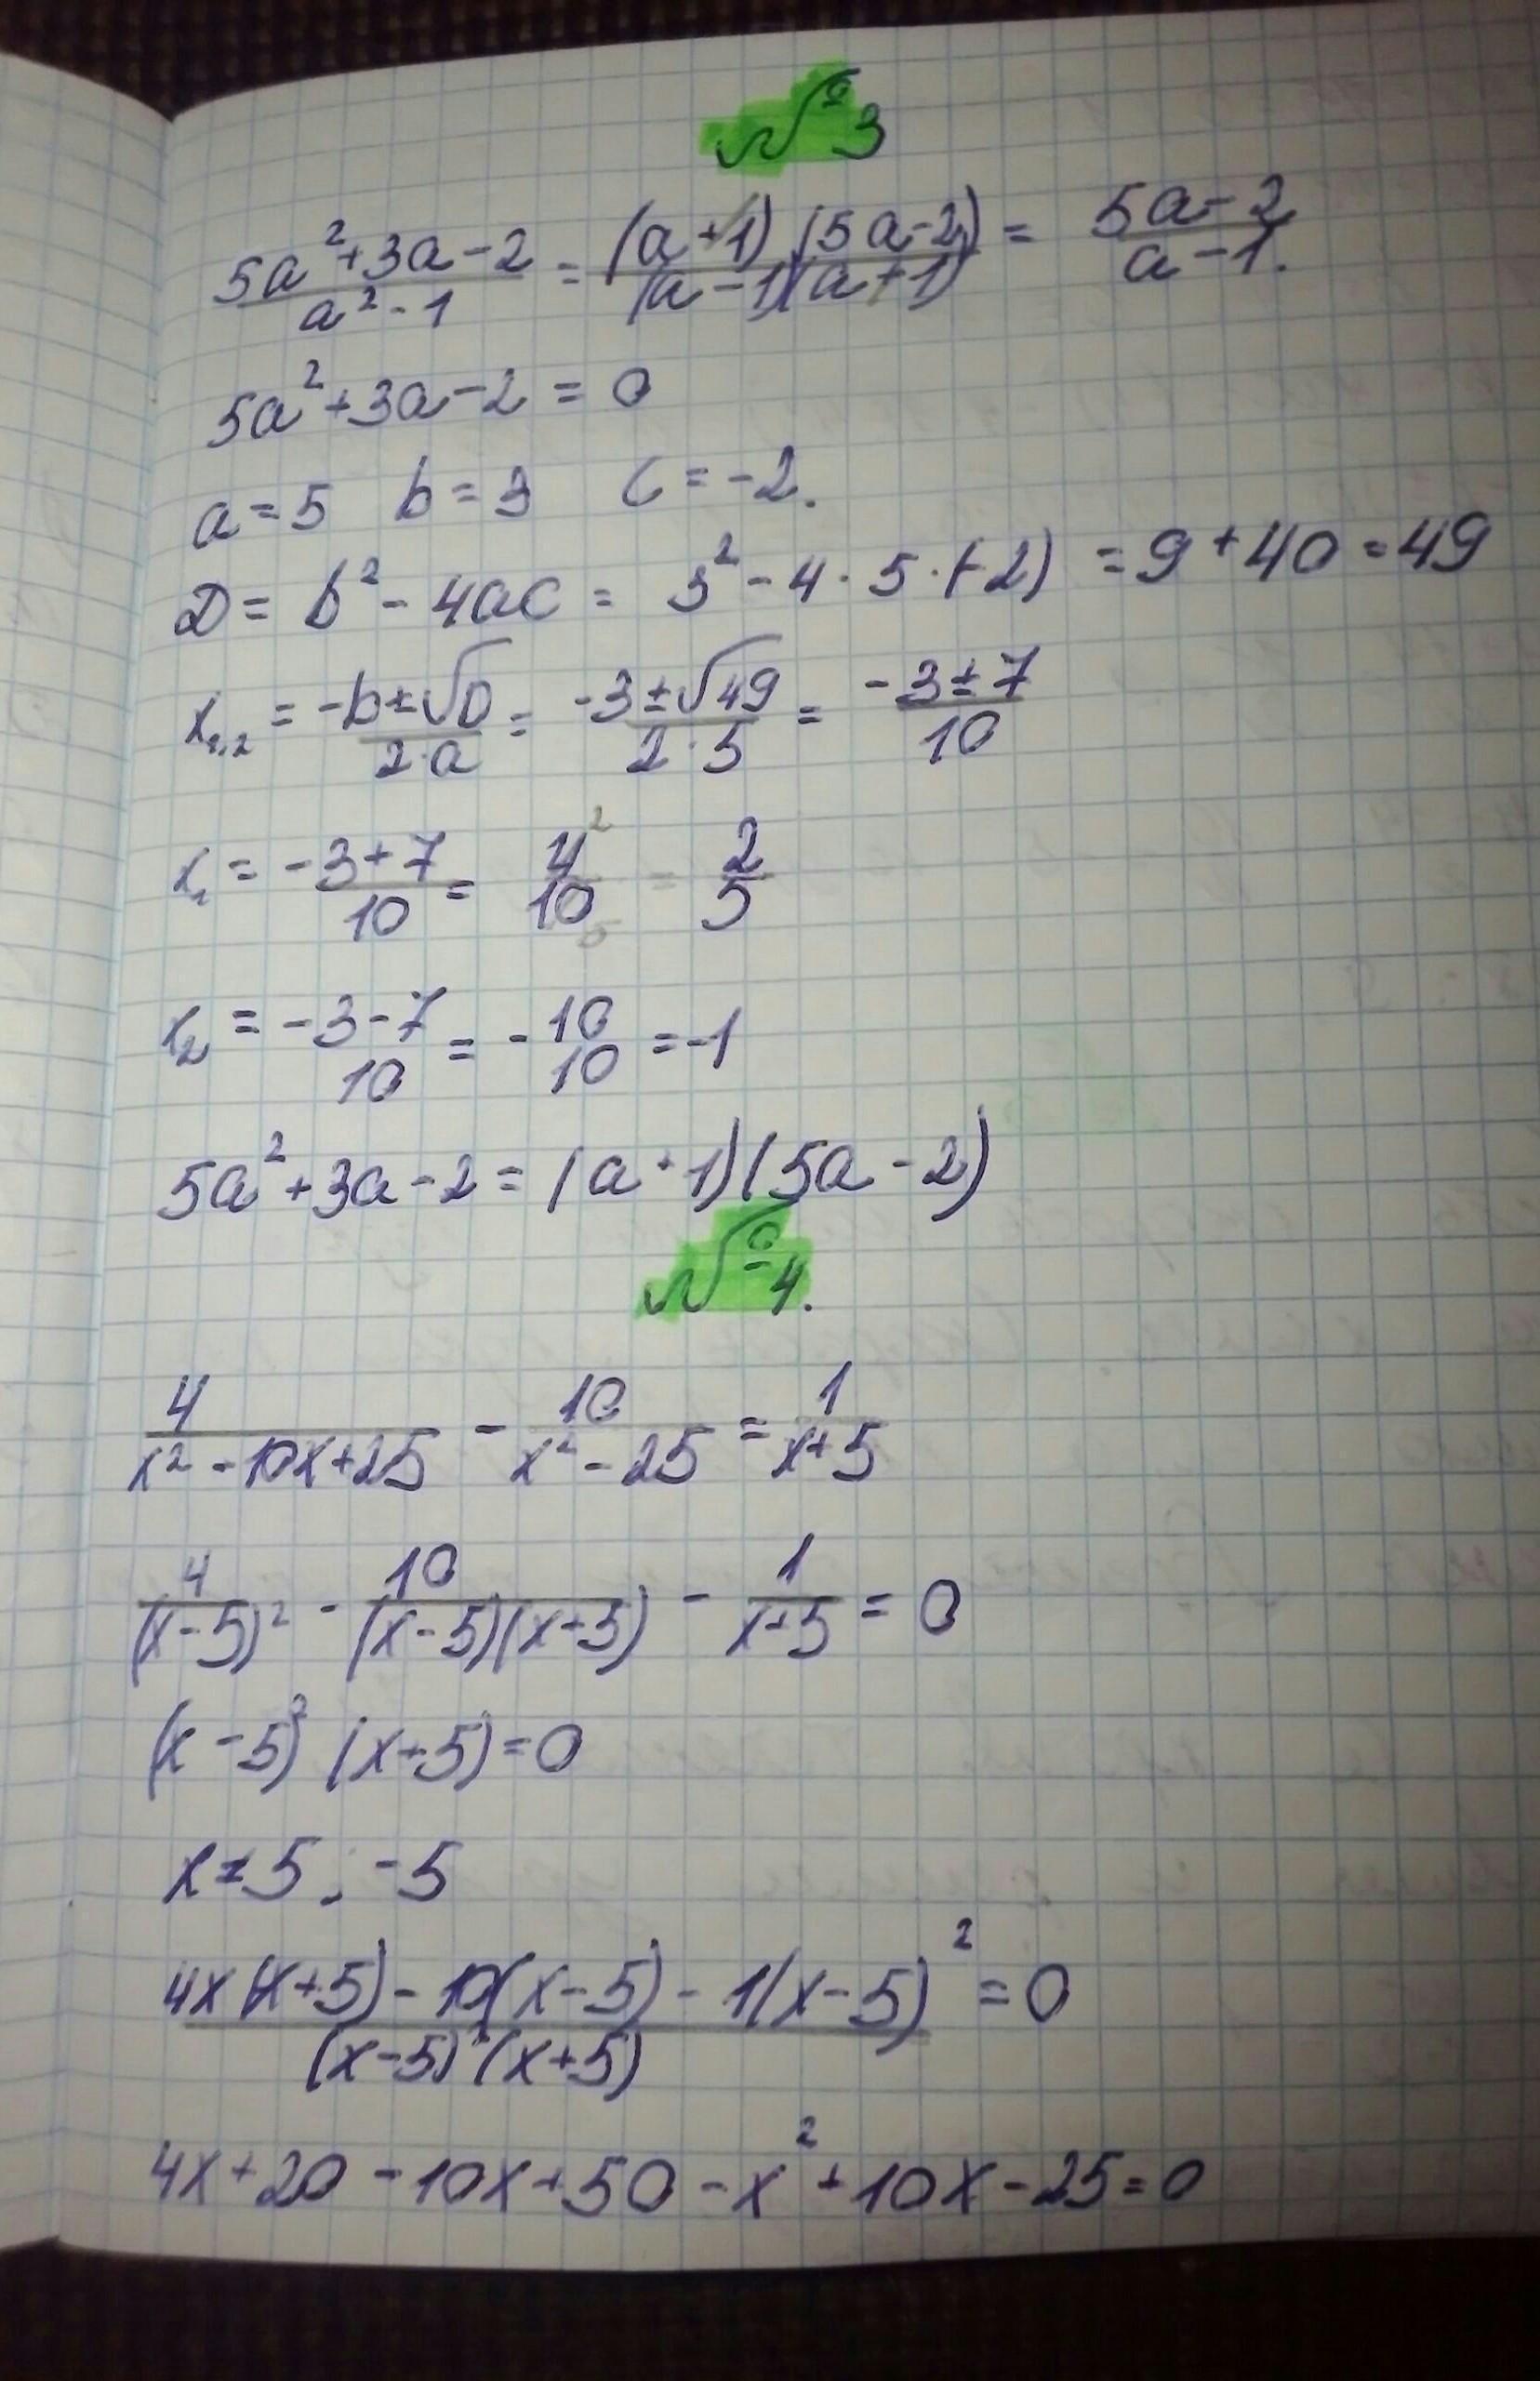 №3
(5a²+3a-2)/(a²-1) = ((a+1)(5a-2))/((a-1)(a+1)) = (5a-2)/(a-1).
5a²+3a-2 = 0
a=5 b=3 c=-2.
D = b²-4ac = 3²-4·5·(-2) = 9+40=49
x₁,₂ = (-b±√D)/(2·a) = (-3±√49)/(2·5) = (-3±7)/10
x₁ = (-3+7)/10 = 4/10 = 2/5
x₂ = (-3-7)/10 = -10/10 = -1
5a²+3a-2 = (a+1)(5a-2)
№4.
4/(x²-10x+25) - 10/(x²-25) = 1/(x+5)
4/(x-5)² - 10/((x-5)(x+5)) - 1/(x+5) = 0
(x-5)²(x+5)=0
x≠5; -5
(4x(x+5)-10(x-5)-1(x-5)²)/((x-5)²(x+5)) = 0
4x+20-10x+50-x²+10x-25=0